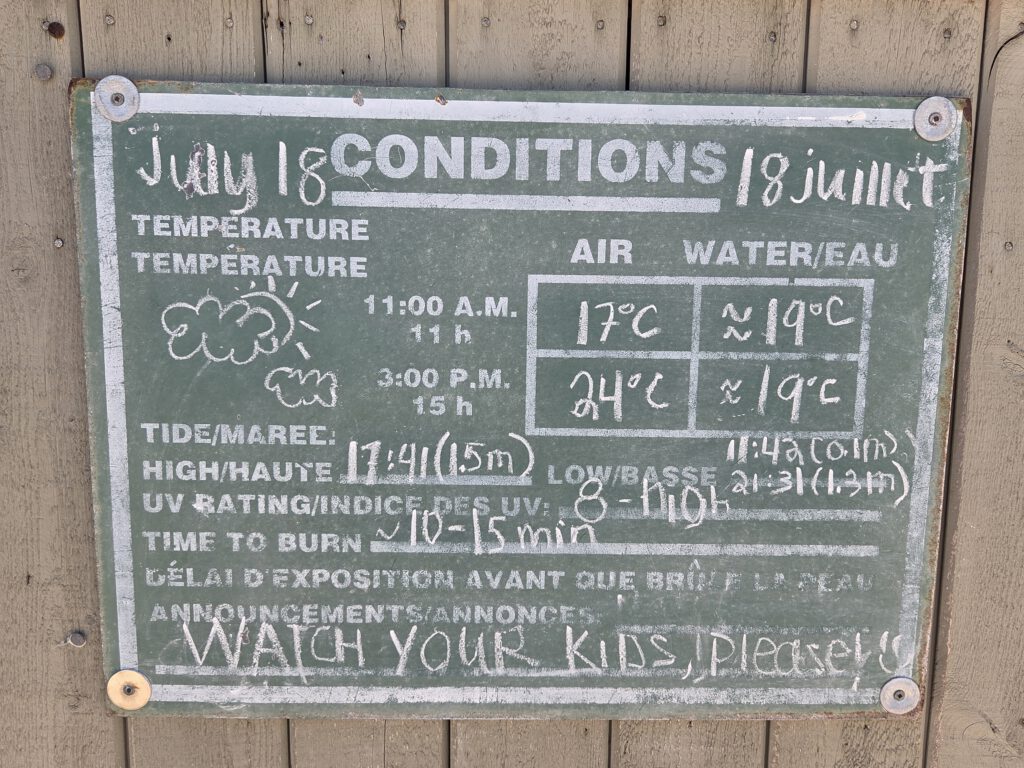 July 18 CONDITIONS 18 juillet
TEMPERATURE
TEMPÉRATURE
AIR WATER/EAU
11:00 A.M. 17°C ≈19°C
11 h
3:00 P.M. 24°C ≈19°C
15 h
TIDE/MAREE:
HIGH/HAUTE 17:41 (1.5m) LOW/BASSE 11:42 (0.1m)
21:31 (1.3m)
UV RATING/INDICE DES UV: 8 - high
TIME TO BURN ~10-15 min
DÉLAI D'EXPOSITION AVANT QUE BRÛLE LA PEAU
ANNOUNCEMENTS/ANNONCES:
WATCH YOUR KIDS, please!